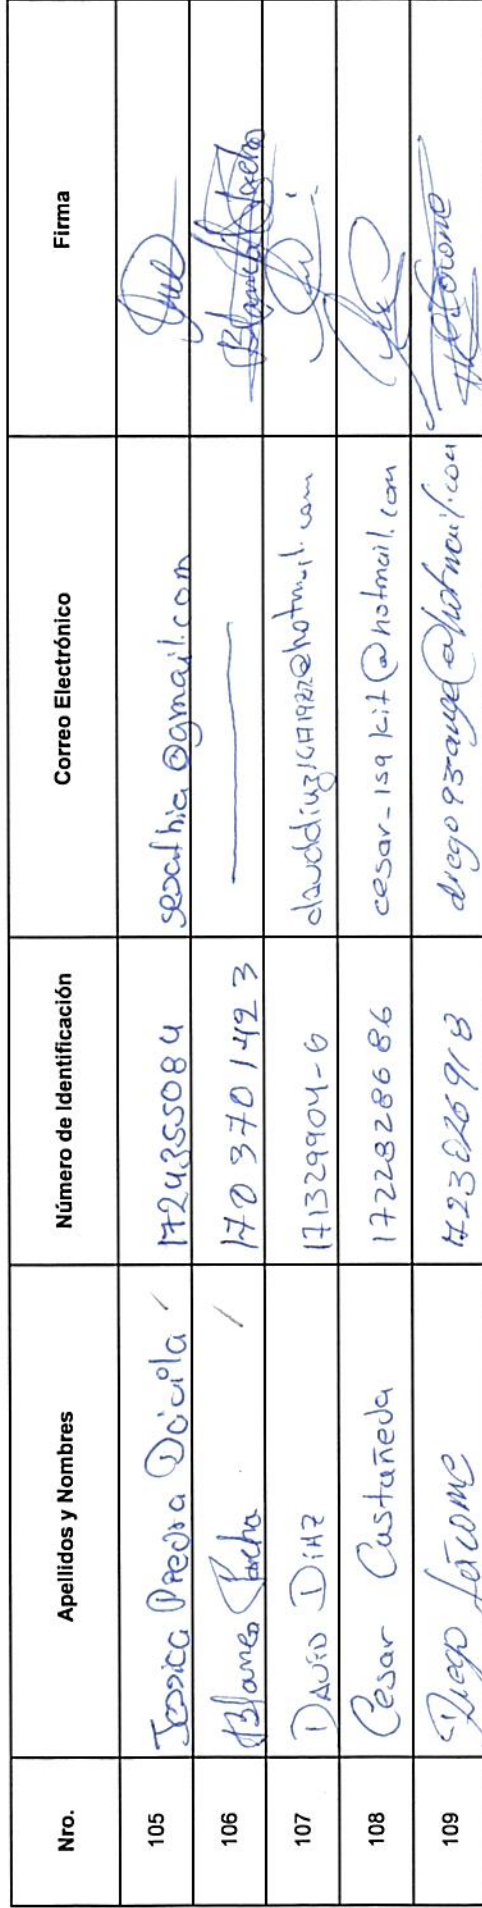 Nro. Apellidos y Nombres Número de Identificación Correo Electrónico Firma
105 Jessica Piedra Dávila 1724355084 sesathia@gmail.com
106 Blanca Pacha 1703701423
107 DAVID DIAZ 171329904-6
108 Cesar Castañeda 1722828686 cesar_isakit@hotmail.com
109 Diego Jácome 1723026918 diego93-angel@hotmail.com